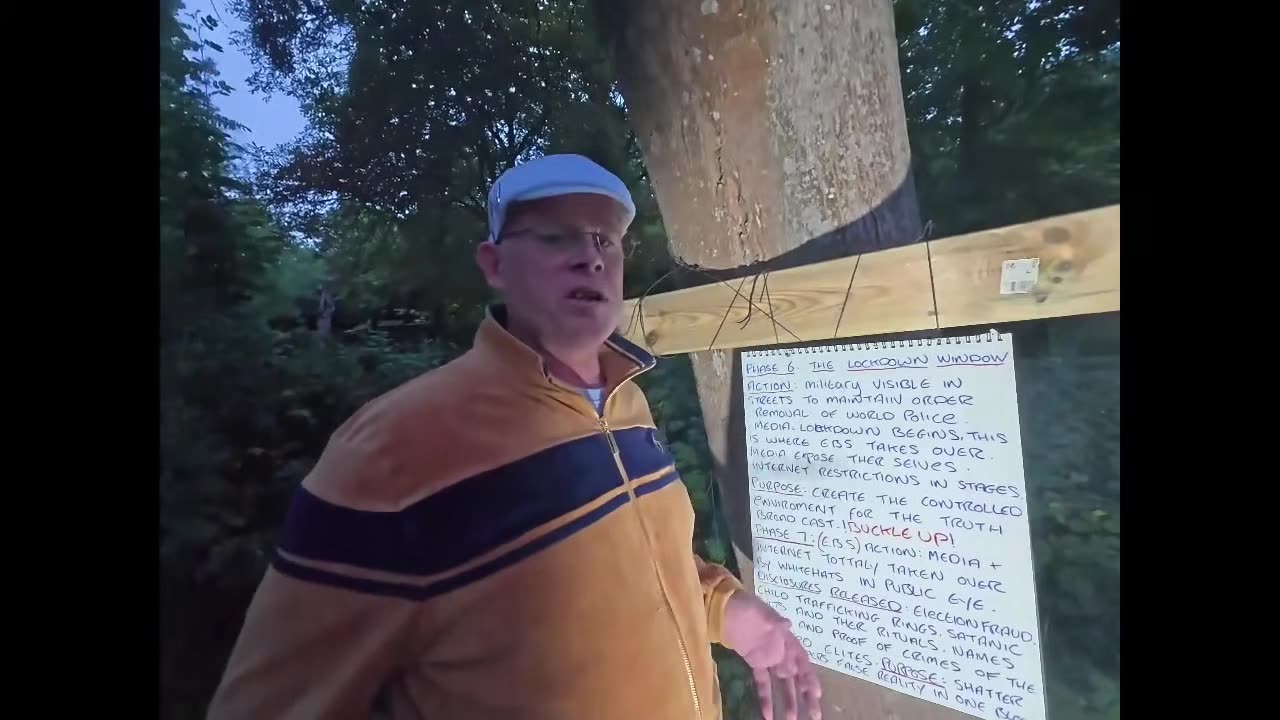 PHASE 6. THE LOCKDOWN WINDOW
ACTION: MILITARY VISIBLE IN
STREETS TO MAINTAIN ORDER
REMOVAL OF WORLD POLICE.
MEDIA. LOCKDOWN BEGINS. THIS
IS WHERE EBS TAKES OVER.
MEDIA EXPOSE THER SELVES.
INTERNET RESTRICTIONS IN STAGES.
PURPOSE: CREATE THE CONTROLLED
ENVIROMENT FOR THE TRUTH
BROADCAST. !BUCKLE UP!
PHASE 7: (EBS) ACTION: MEDIA +
INTERNET TOTTALY TAKEN OVER
BY WHITEHATS IN PUBLIC EYE.
DISCLOSURES RELEASED: ELECTION FRAUD.
CHILD TRAFFICKING RINGS. SATANIC
AND THER RITUALS. NAMES
AND PROOF OF CRIMES OF THE
ELITES. PURPOSE: SHATTER
FALSE REALITY IN ONE